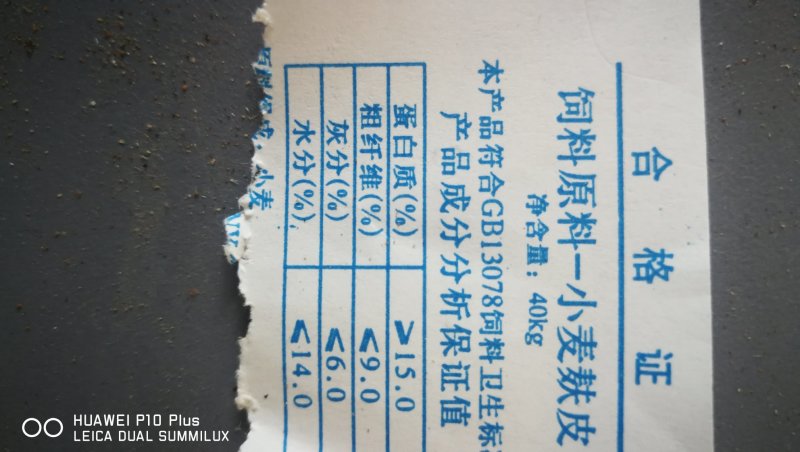 合格证
饲料原料—小麦麸皮
净含量：40kg
本产品符合GB13078饲料卫生标
产品成分分析保证值
蛋白质(%) ≥15.0
粗纤维(%) ≤9.0
灰分(%) ≤6.0
水分(%) ≤14.0
小麦
HUAWEI P10 Plus
LEICA DUAL SUMMILUX